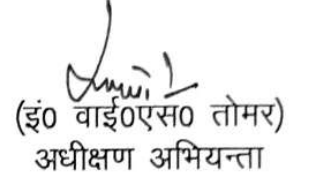 (इं0 वाई0एस0 तोमर)
अधीक्षण अभियन्ता